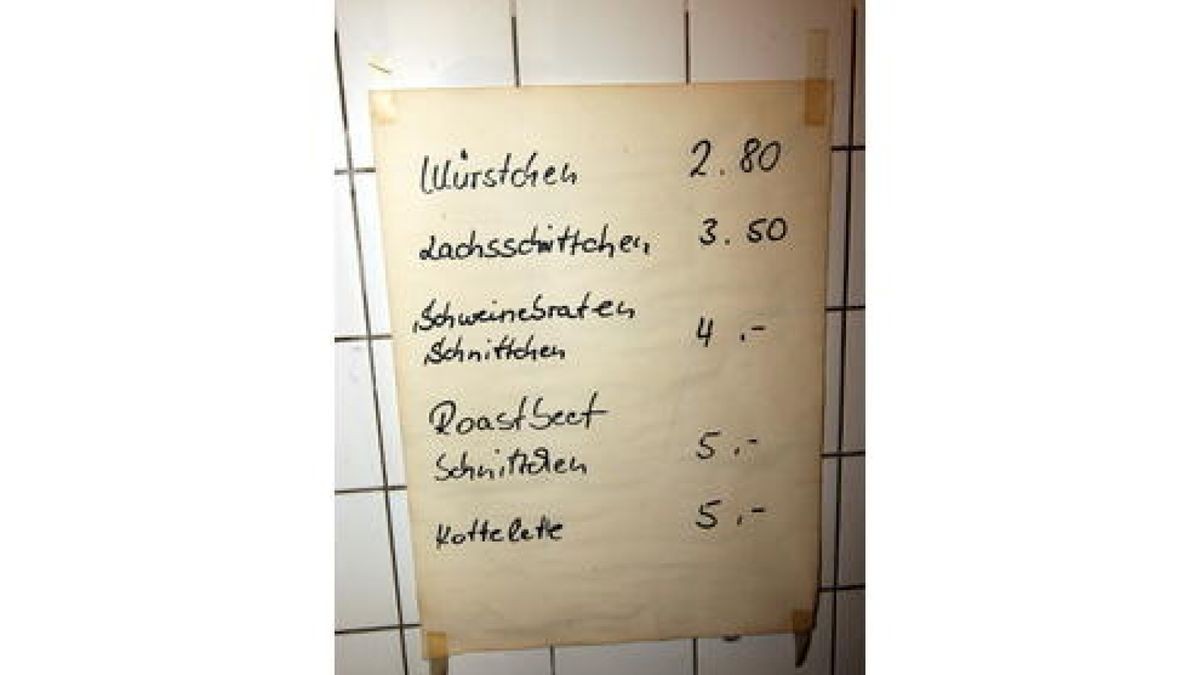 Würstchen 2.80
Lachsschnittchen 3.50
Schweinebraten
Schnittchen 4.-
Roastbeef
Schnittchen 5.-
Kottelette 5.-